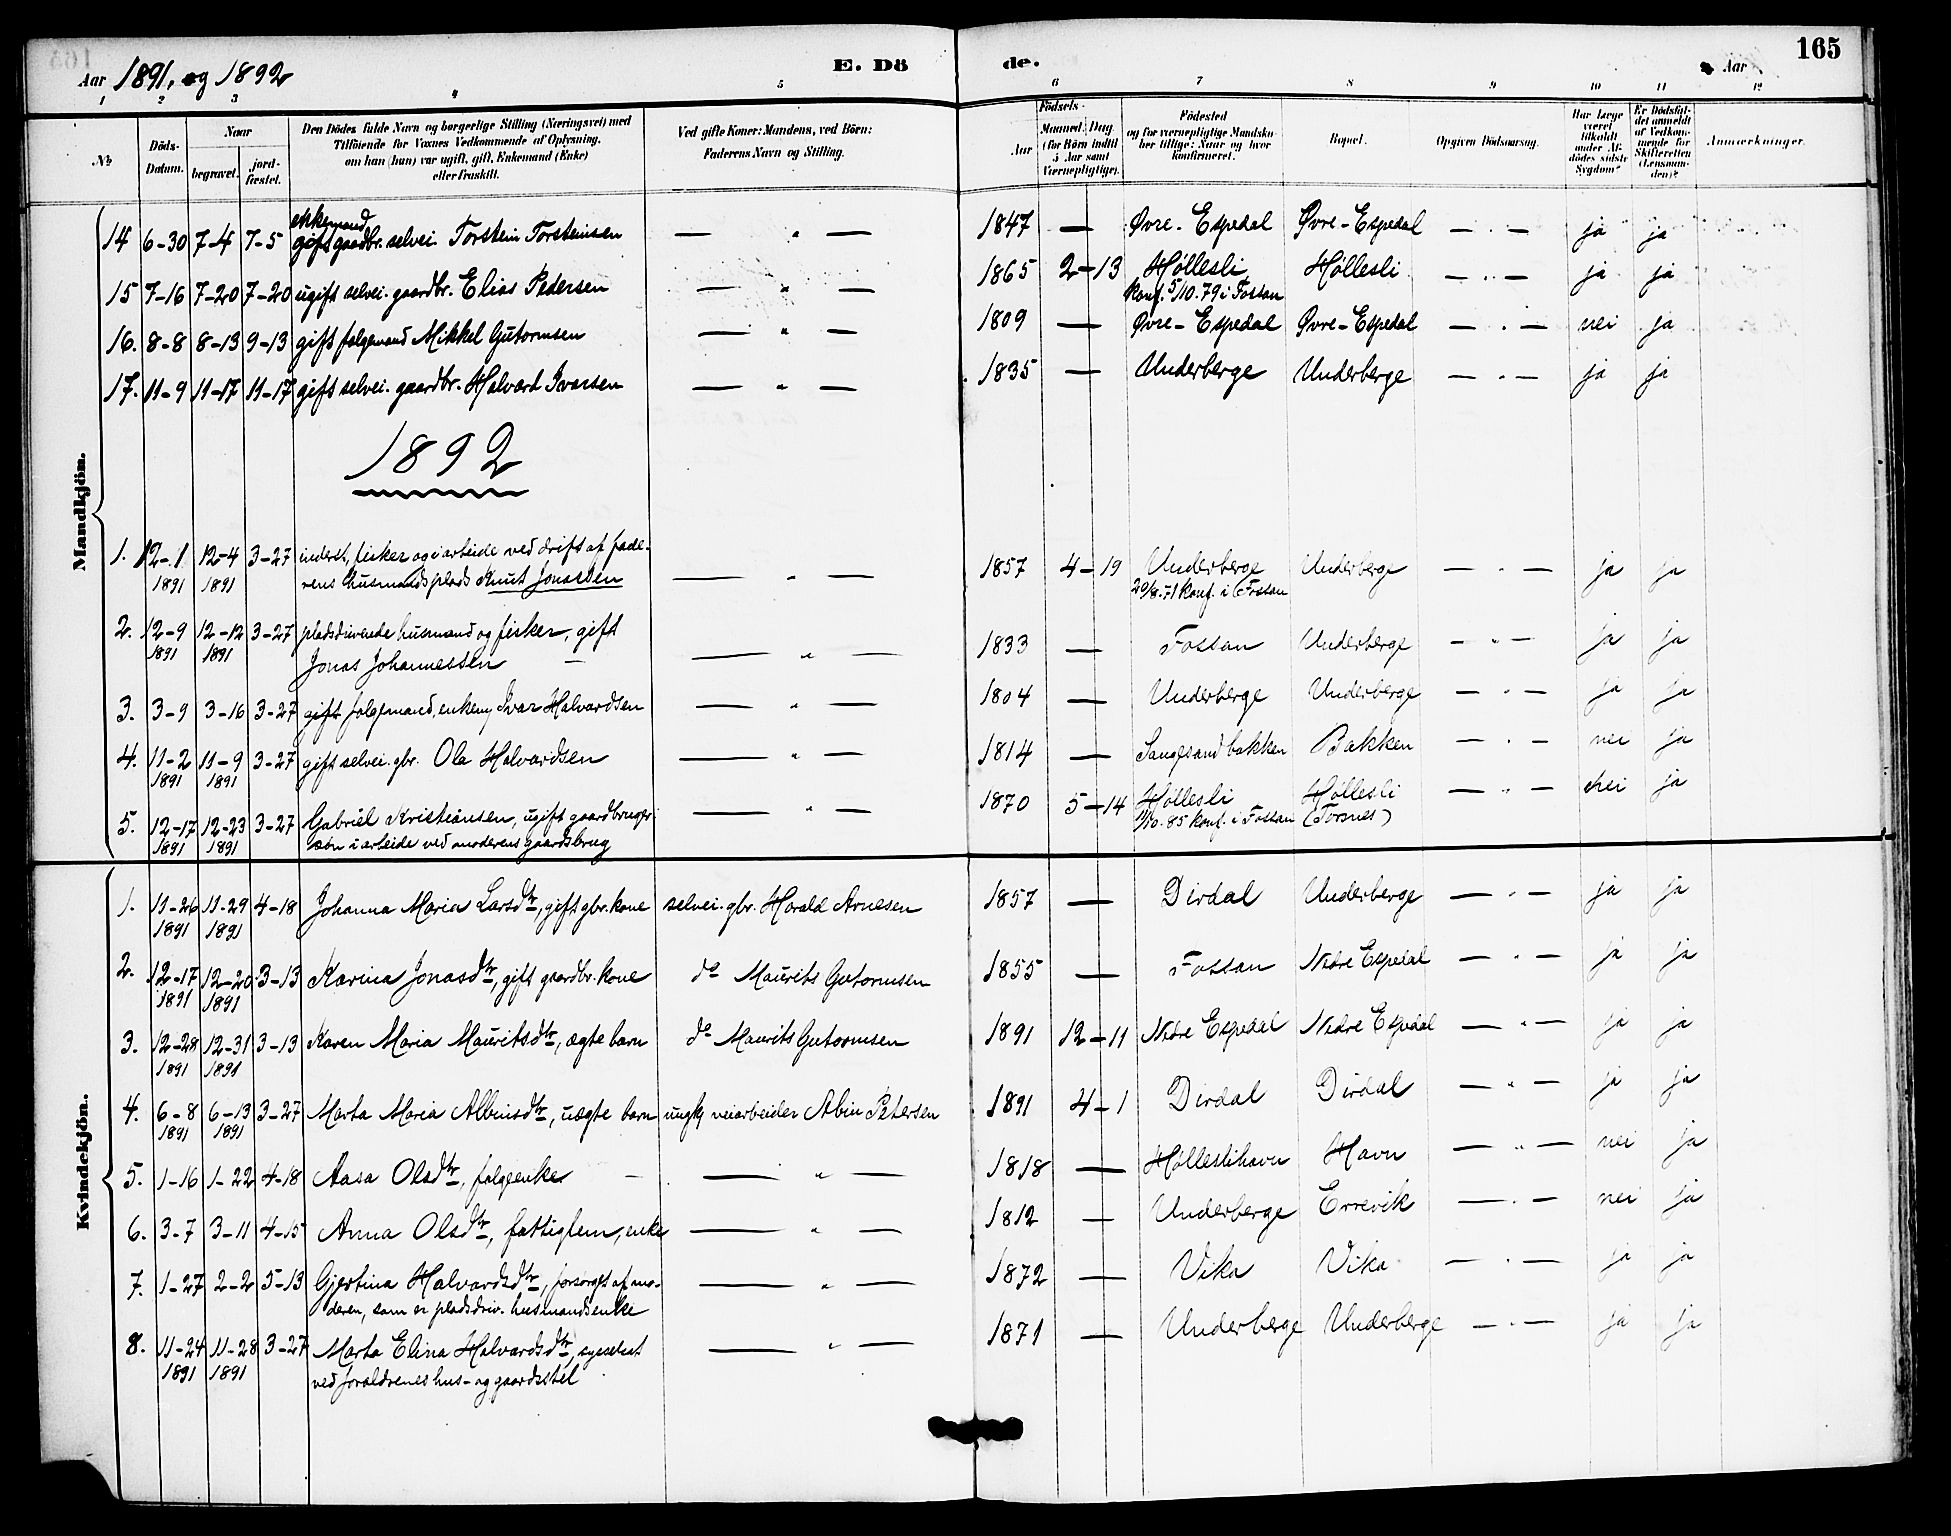 Aar 1891, og 1892 E. Dö de. Aar 165
1 2 3 4 5 6 7 8 9 10 11 12
No
Döds-Datum.
Naar
begravet.
jord-fæstet.
Den Dödes fulde Navn og borgerlige Stilling (Næringsvei) med
Tilföiende for Voxnes Vedkommende af Oplysning,
om han (hun) var ugift, gift, Enkemand (Enke)
eller fraskilt.
Ved gifte Koner: Mandens, ved Börn:
Faderens Navn og Stilling.
Födsels-
Aar
Maaned. Dag
(for Börn indtil
5 Aar samt
Værnepligtige).
Födested
og for værnepligtige Mandsko-
ner tillige: Naar og hvor
konfirmeret.
Bopæl.
Opgiven Dödsaarsag.
Har Læge
været
tilkaldt
under Af-
dödes sidste
Sygdom?
Er Dödsfal-
det anmeldt
af Vedkom-
mende for
Skifteretten
(Lensman-
den)?
Anmærkninger.
Mandkjön.
enkemand
14 6-30 7-4 7-5 gift gaardbr. selvei. Torstein Torsteinsen — " — 1847 — Øvre-Espedal Øvre-Espedal — " — ja ja
15 7-16 7-20 7-20 ugift selvei. gaardbr. Elias Pedersen — " — 1865 2-13 Høllesli Høllesli — " — ja ja
konf. 5/10.79 i Fossan
16. 8-8 8-13 9-13 gift følgemand Mikkel Gutormsen — " — 1809 — Øvre-Espedal Øvre-Espedal — " — nei ja
17. 11-9 11-17 11-17 gift selvei. gaardbr. Halvard Ivarsen — " — 1835 — Underberge Underberge — " — ja ja
1892
1. 12-1 12-4 3-27 inderst, fisker og i arbeide ved drift af fade-
1891 1891 rens husmandsplads Knut Jonassen — " — 1857 4-19 Underberge Underberge — " — ja ja
20/8.71 konf. i Fossan
2. 12-9 12-12 3-27 pladsdrivende husmand og fisker, gift
1891 1891 Jonas Johannessen — — " — 1833 — Fossan Underberge — " — ja ja
3. 3-9 3-16 3-27 gift følgemand, enkem, Ivar Halvardsen — " — 1804 — Underberge Underberge — " — ja ja
4. 11-2 11-9 3-27 gift selvei. gbr. Ola Halvardsen — " — 1814 — Sangesandbakken Bakken — " — nei ja
1891 1891
5. 12-17 12-23 3-27 Gabriel Kristiansen, ugift gaardbruger- — " — 1870 5-14 Høllesli Høllesli — " — nei ja
1891 1891 søn i arbeide ved moderens gaardsbrug 11/10.85 konf. i Fossan (Forsnes)
Kvindekjön.
1. 11-26 11-29 4-18 Johanna Maria Larsdtr, gift gbr. kone selvei. gbr. Harald Arnesen 1857 — Dirdal Underberge — " — ja ja
1891 1891
2. 12-17 12-20 3-13 Karina Jonasdtr, gift gaardbr. kone do Maurits Gutormsen 1855 — Fossan Nedre Espedal — " — ja ja
1891 1891
3. 12-28 12-31 3-13 Karen Maria Mauritsdtr, ægte barn do Maurits Gutormsen 1891 12-11 Nedre Espedal Nedre Espedal — " — ja ja
1891 1891
4. 6-8 6-13 3-27 Marta Maria Albinsdtr, uægte barn ungk, veiarbeider Albin Petersen 1891 4-1 Dirdal Dirdal — " — ja ja
1891 1891
5. 1-16 1-22 4-18 Aasa Olsdtr, følgeenke — — " — 1818 — Hølleslihavn Havn — " — nei ja
6. 3-7 3-11 4-15 Anna Olsdtr, fattiglem, enke — " — 1812 — Underberge Errevik — " — nei ja
7. 1-27 2-2 5-13 Gjertina Halvardsdtr, forsørget af mo- — " — 1872 — Vika Vika — " — ja ja
deren, som er pladsdriv. husmandsenke
8. 11-24 11-28 3-27 Marta Elina Halvardsdtr, sysselsat — " — 1871 — Underberge Underberge — " — ja ja
1891 1891 ved forældrenes hus- og gaardsstel